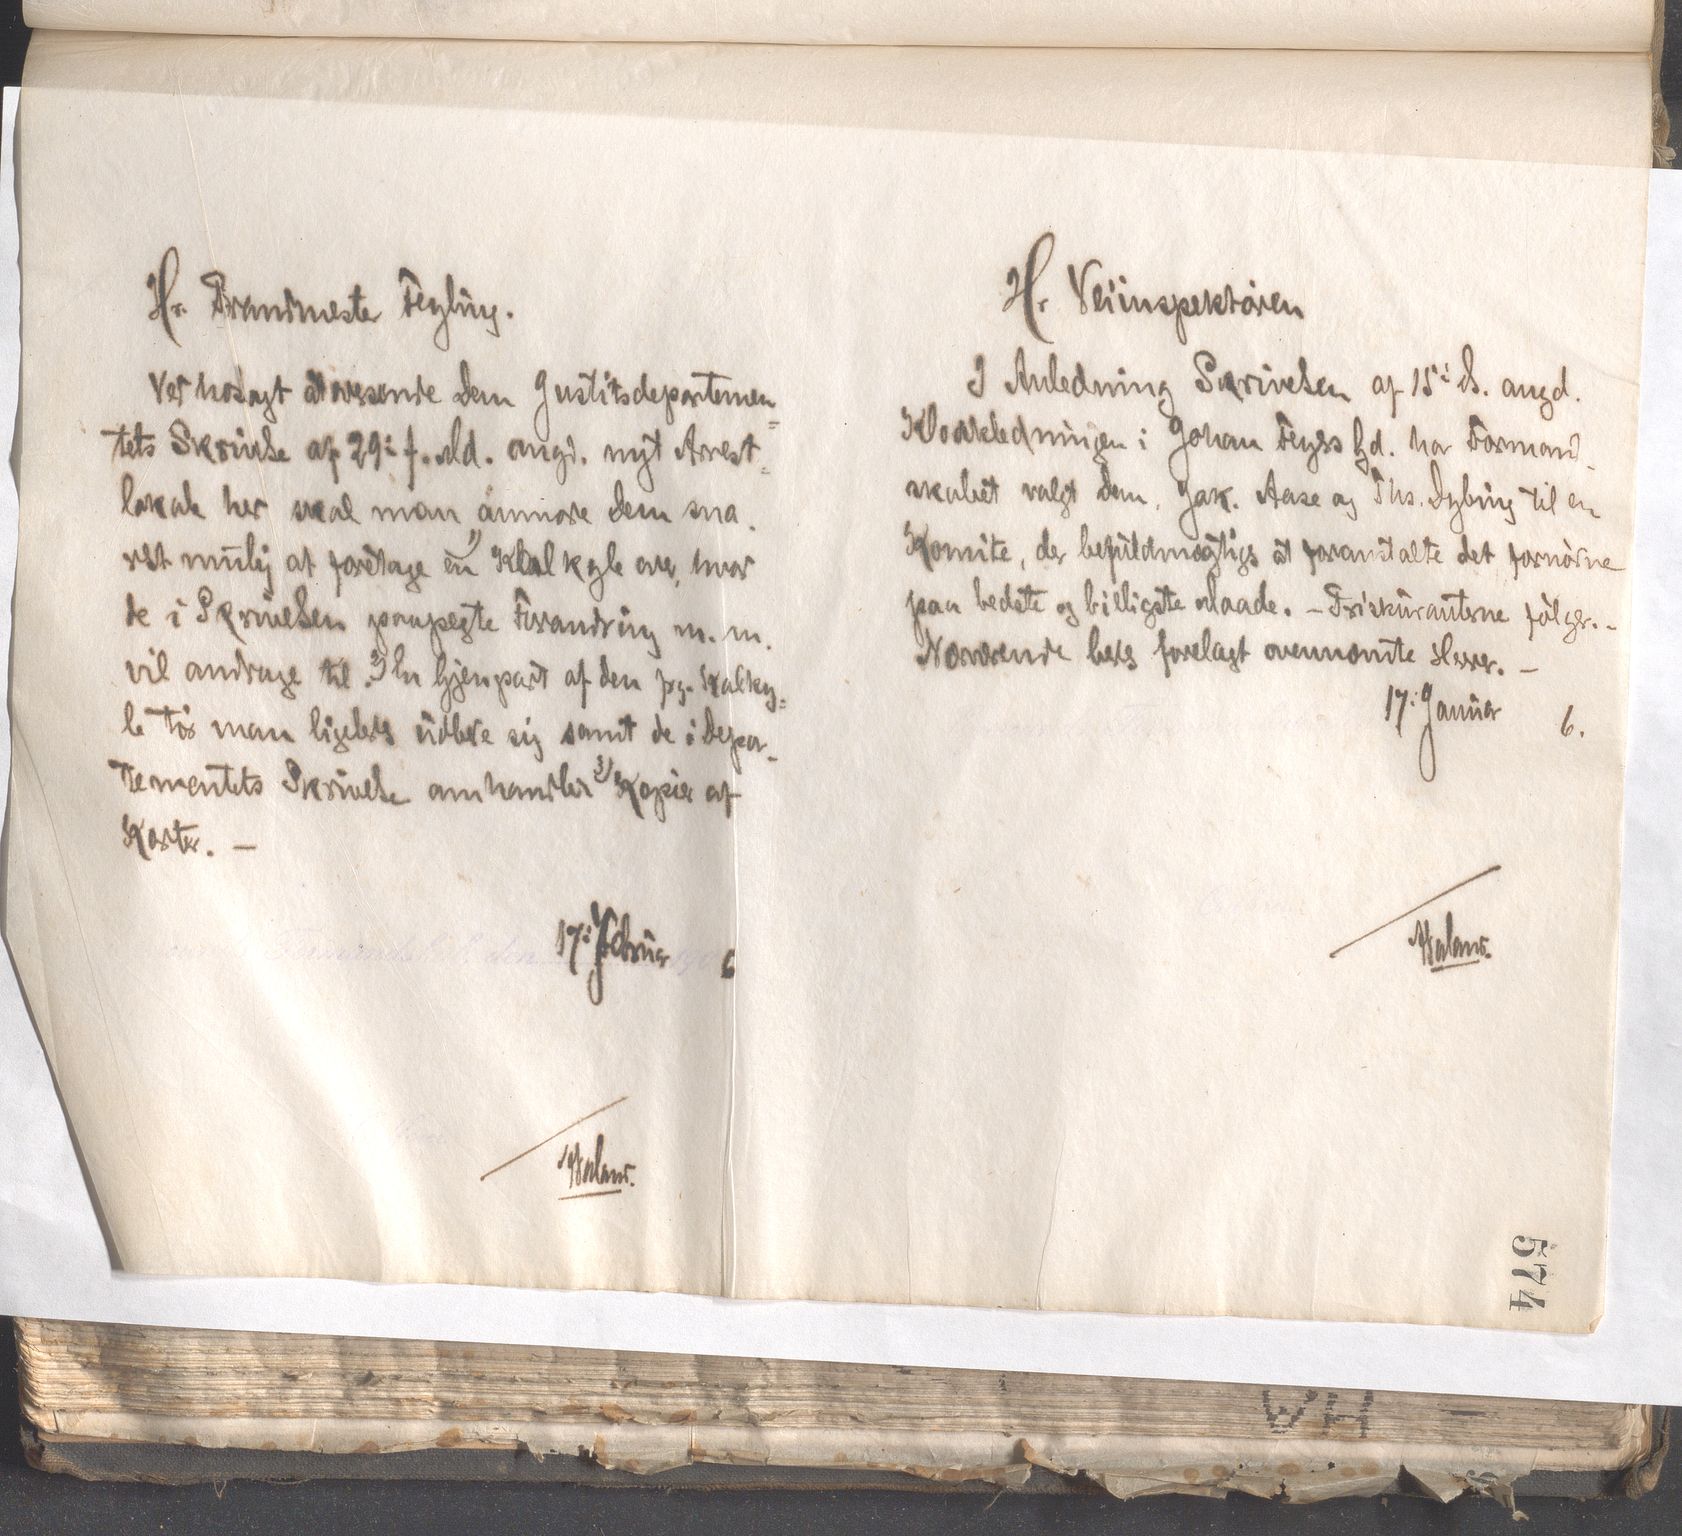 Hr. Brandmester Fegling.
Vedhosagt at oversende Dem Justitsdepartemen-
tets Skrivelse af 29: f. Md. angd. nyt Arrest-
lokale her skal man anmode Dem sna-
rest mulig at foretage en 1) Kalkyle over, hvor
de i Skrivelsen paapegte Forandring m. m.
vil andrage til. 2) En Gjenpart af den pg. Kalky-
le tør man ligeledes udbede sig samt de i Depar-
tementets Skrivelse omhandlede 3) Kopier af
Karter. —
17: Februar 6
Waland.
Hr. Veiinspektøren
I Anledning Skrivelsen af 15: ds. angd.
Kloakledningen i Johan Feyes Gd. har Formand-
skabet valgt Dem, Jak. Aase og Ths. Dybing til en
Komite, der befuldmægtiges at foranstalte det fornødne
paa bedste og billigste Maade. — Priskuranterne følger. -
Nærværende bedes forelagt ovennævnte Herrer. —
17: Januar 6.
Waland.
574